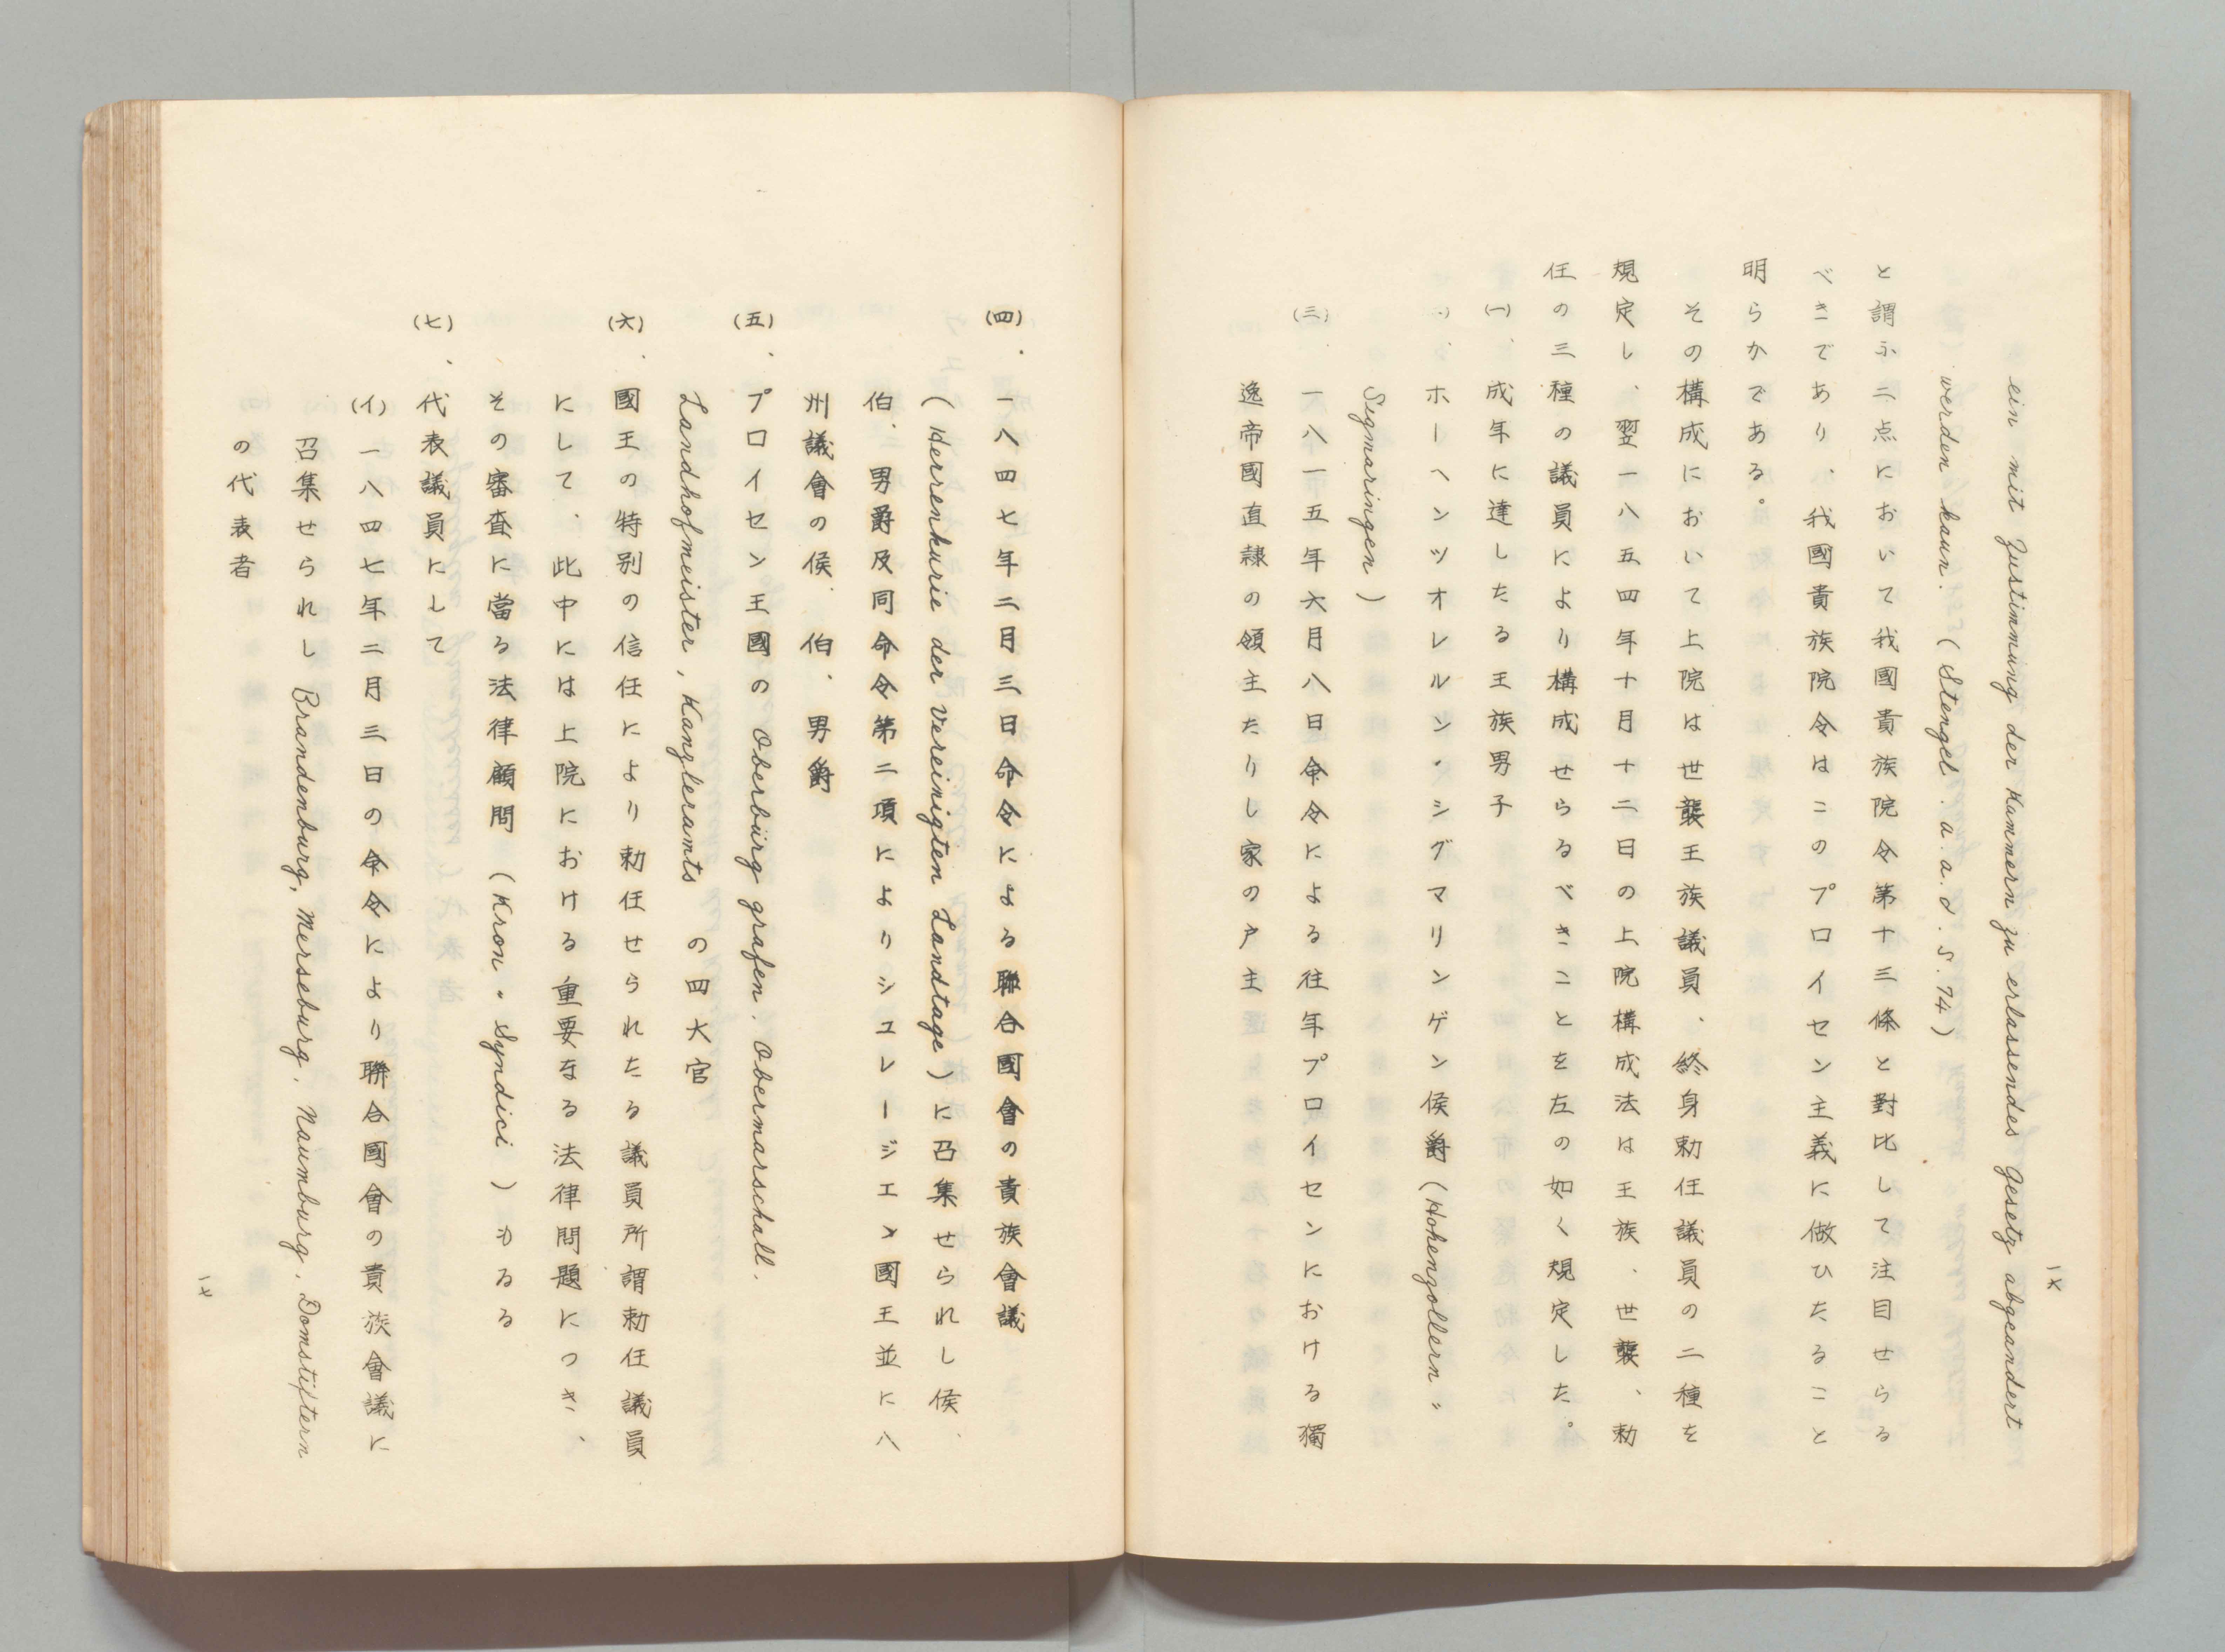 一六
ein mit Zustimmung der Kammern zu erlassendes Gesetz abgeandert
werden kaun. (Stengel. a. a. d. S. 74)
と謂ふ二点において我國貴族院令第十三條と對比して注目せらる
べきであり、我國貴族院令はこのプロイセン主義に倣ひたること
明らかである。
その構成において上院は世襲王族議員、終身勅任議員の二種を
規定し、翌一八五四年十月十二日の上院構成法は王族、世襲、勅
任の三種の議員により構成せらるべきことを左の如く規定した。
(一)、成年に達したる王族男子
、ホーヘンツオレルン・シグマリンゲン侯爵(Hohenzollern〃
Sigmaringen)
(三)、一八一五年六月八日命令による往年プロイセンにおける獨
逸帝國直隷の領主たりし家の戸主
(四)、一八四七年二月三日命令による聯合國會の貴族會議
(Herrenkurie der Vereinigten Landtage)に召集せられし侯、
伯、男爵及同命令第二項によりシユレージエン國王並に八
州議會の侯、伯、男爵
(五)、プロイセン王國の Oberbürg grafen. Obermarschall.
Landhofmeister, Kanzleramts の四大官
(六)、國王の特別の信任により勅任せられたる議員所謂勅任議員
にして、此中には上院における重要なる法律問題につき、
その審査に當る法律顧問 (Kron〃Syndici) もゐる
(七)、代表議員にして
(イ)一八四七年二月三日の命令により聯合國會の貴族會議に
召集せられし Brandenburg, Merseburg, Naumburg, Domstiftern
の代表者
一七